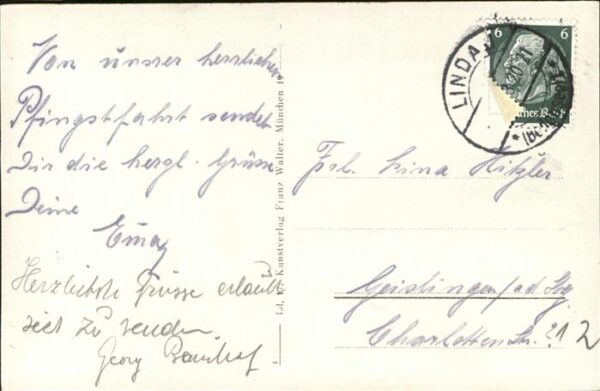 Von unser herrlichen
Pfingstfahrt sendet
Dir die herzl. Grüsse
Deine
Emmy
Herzlichste Grüsse erlaubt
sich zu senden
Georg
Kunstverlag Franz Walter, München
LINDAU
6 6
Frl. Lina Hitzler
Geislingen/ad. Stg
Charlottenstr. 12